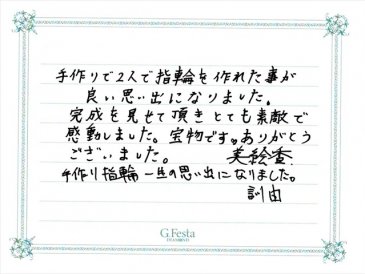 手作りで2人で指輪を作れた事が
良い思い出になりました。
完成を見せて頂きとても素敵で
感動しました。宝物です。ありがとう
ございました。 美絵香
手作り指輪一生の思い出になりました。
訓由
G.Festa